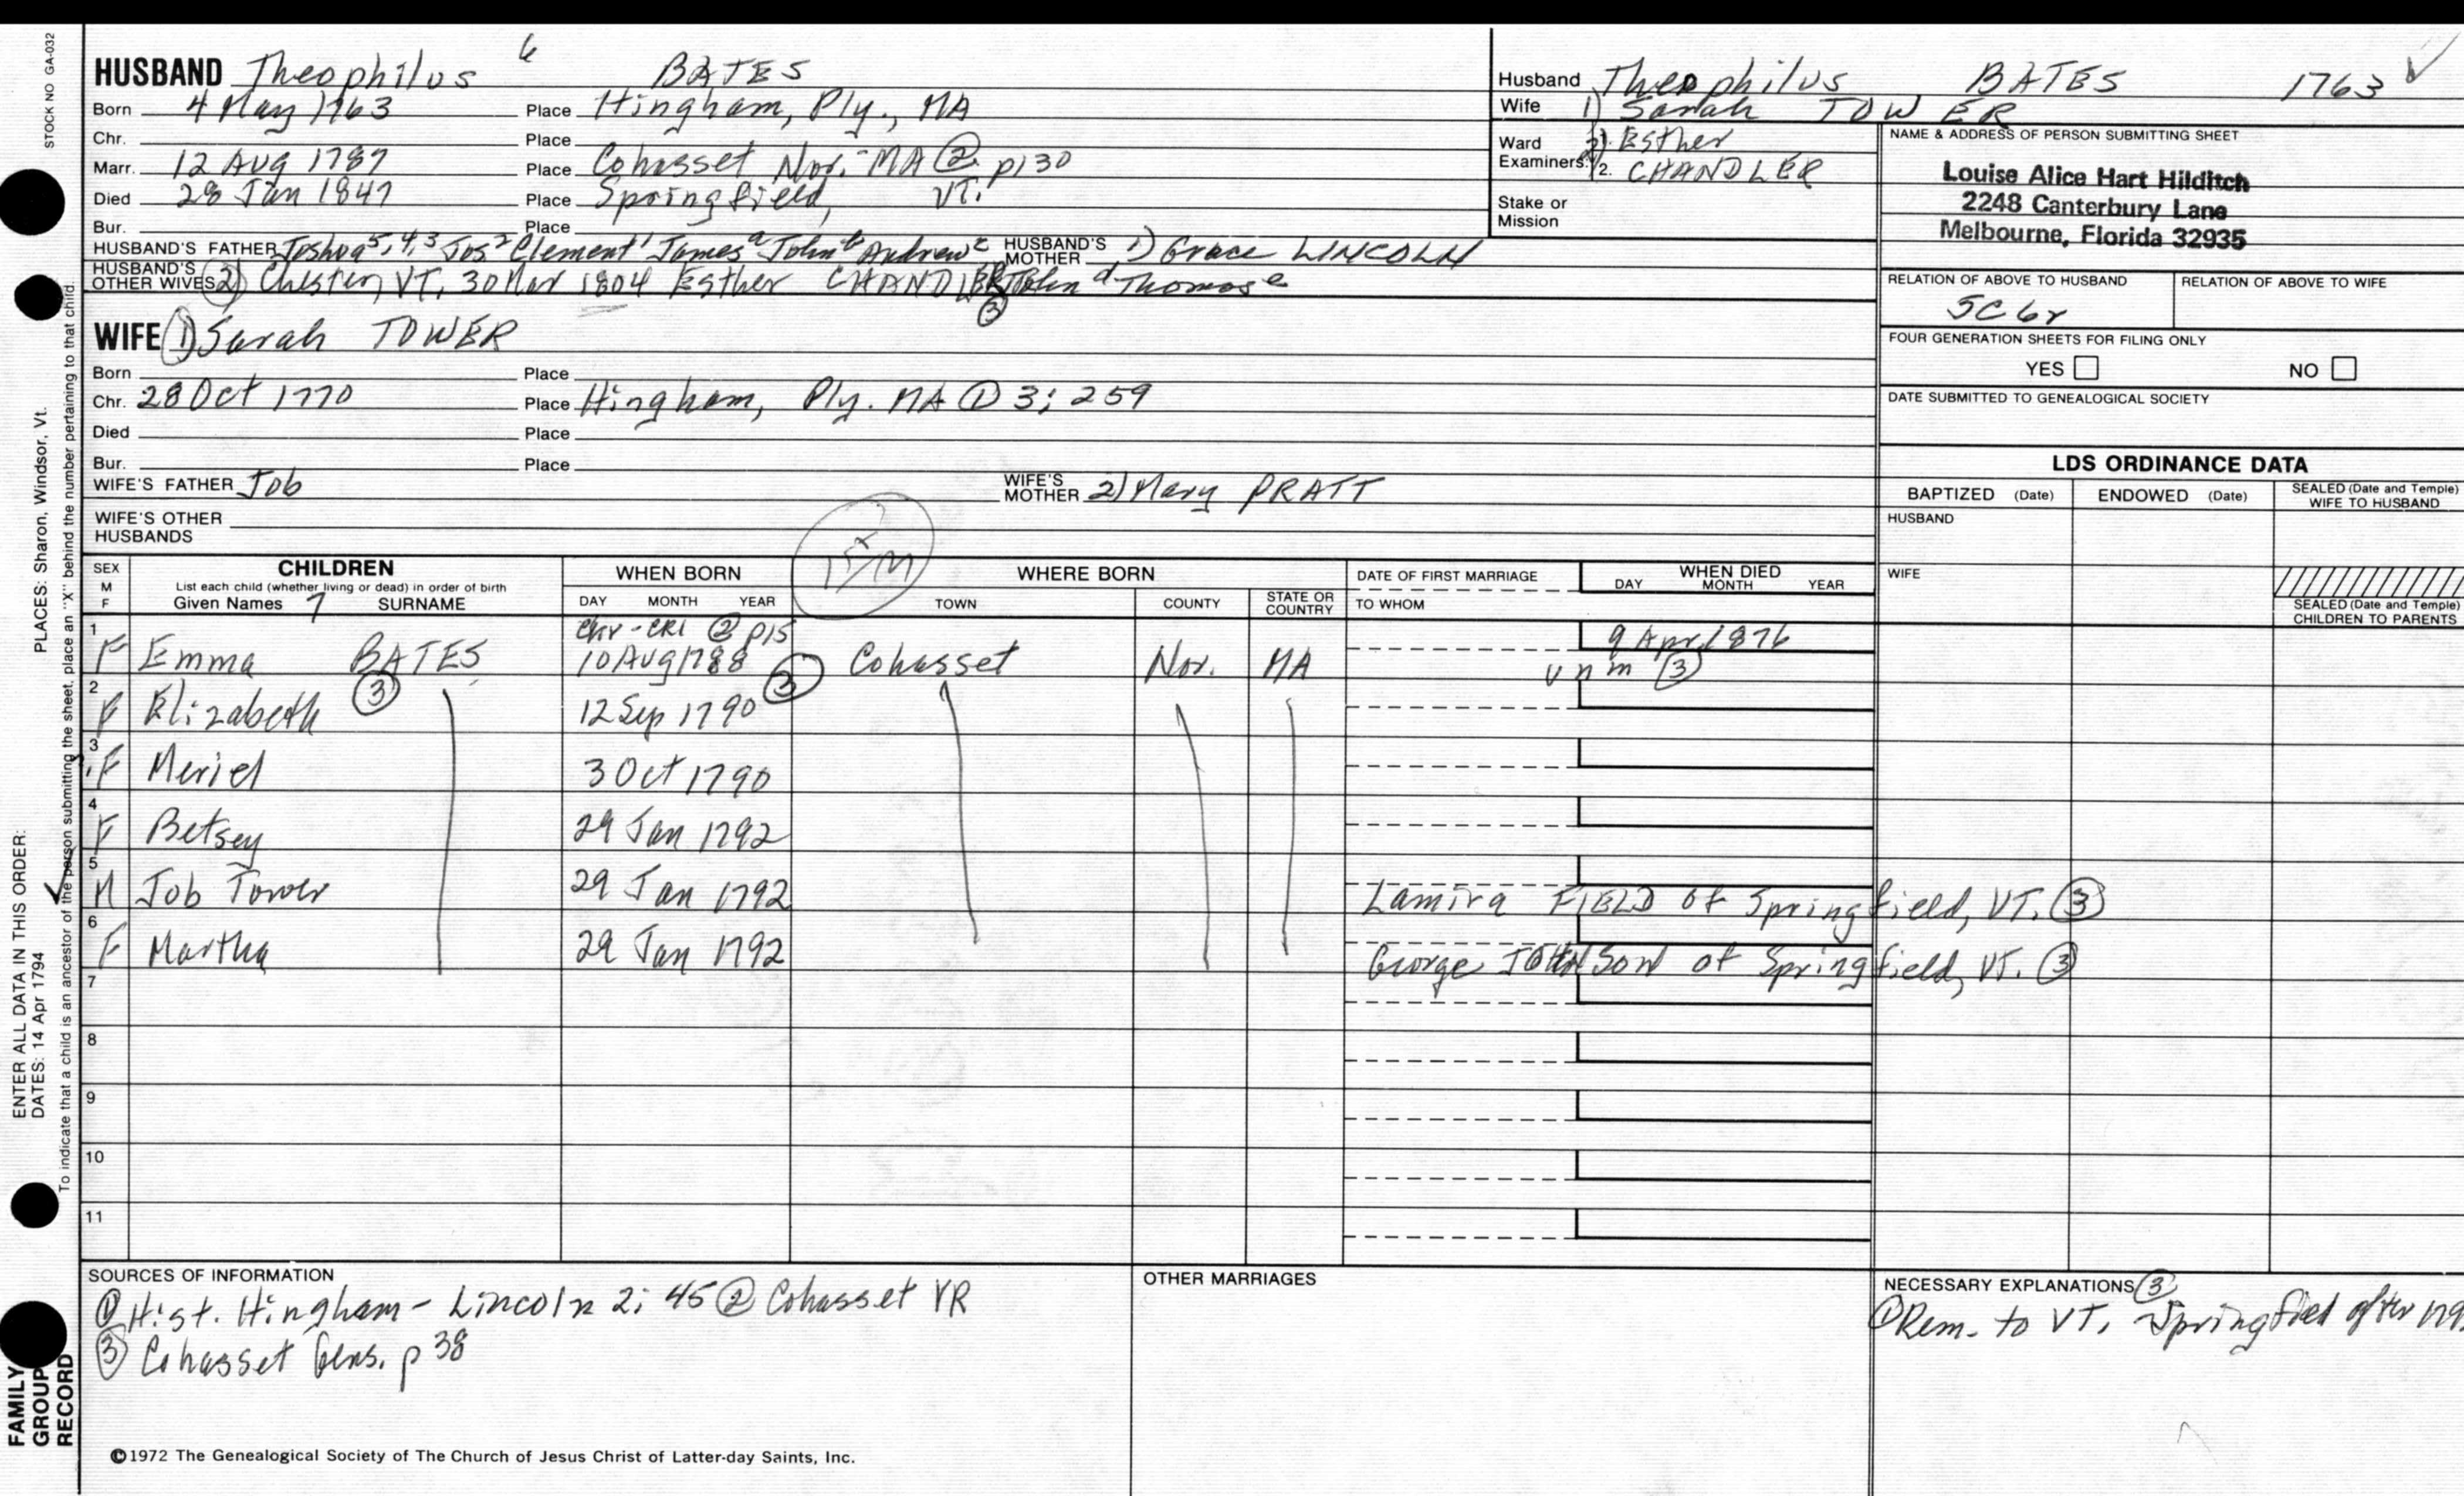 STOCK NO GA-032
HUSBAND Theophilus 6 BATES
Born 4 May 1763 Place Hingham, Ply., MA
Chr. Place
Marr. 12 Aug 1787 Place Cohasset Nor. MA ② p130
Died 28 Jan 1847 Place Springfield, VT.
Bur. Place
HUSBAND'S FATHER Joshua 5,4,3 Jos 2 Clement 1 James a John b Andrew c HUSBAND'S MOTHER 1) Grace LINCOLN
HUSBAND'S OTHER WIVES 2) Chester, VT. 30 Mar 1804 Esther CHANDLER John d Thomas e
③
WIFE 1) Sarah TOWER
Born Place
Chr. 28 Oct 1770 Place Hingham, Ply. MA ① 3; 259
Died Place
Bur. Place
WIFE'S FATHER Job WIFE'S MOTHER 2) Mary PRATT
WIFE'S OTHER HUSBANDS
Husband Theophilus BATES 1763 ✓
Wife 1) Sarah TOWER
Ward 2) Esther
Examiners: 1/2. CHANDLER
Stake or Mission
NAME & ADDRESS OF PERSON SUBMITTING SHEET
Louise Alice Hart Hilditch
2248 Canterbury Lane
Melbourne, Florida 32935
RELATION OF ABOVE TO HUSBAND RELATION OF ABOVE TO WIFE
5C6r
FOUR GENERATION SHEETS FOR FILING ONLY
YES NO
DATE SUBMITTED TO GENEALOGICAL SOCIETY
LDS ORDINANCE DATA
BAPTIZED (Date) ENDOWED (Date) SEALED (Date and Temple) WIFE TO HUSBAND
HUSBAND
WIFE
SEALED (Date and Temple) CHILDREN TO PARENTS
SEX M F CHILDREN WHEN BORN WHERE BORN DATE OF FIRST MARRIAGE WHEN DIED
List each child (whether living or dead) in order of birth DAY MONTH YEAR
Given Names 7 SURNAME DAY MONTH YEAR TOWN COUNTY STATE OR COUNTRY TO WHOM
1 chr-CR1 ② p15 9 Apr 1876
F Emma BATES 10 Aug 1788 ③ Cohasset Nor. MA unm ③
2 F Elizabeth ③ 12 Sep 1790
3 F Meriel 3 Oct 1790
4 F Betsey 29 Jan 1792
5 M Job Tower 29 Jan 1792 Lamira FIELD of Springfield, VT. ③
6 F Martha 29 Jan 1792 George JOHNSON of Springfield, VT. ③
7
8
9
10
11
SOURCES OF INFORMATION
① Hist. Hingham - Lincoln 2; 45 ② Cohasset VR
③ Cohasset Gens. p 38
OTHER MARRIAGES
NECESSARY EXPLANATIONS ③
① Rem. to VT, Springfield after
©1972 The Genealogical Society of The Church of Jesus Christ of Latter-day Saints, Inc.
FAMILY GROUP RECORD
ENTER ALL DATA IN THIS ORDER:
DATES: 14 Apr 1794
PLACES: Sharon, Windsor, Vt.
To indicate that a child is an ancestor of the person submitting the sheet, place an "X" behind the number pertaining to that child.